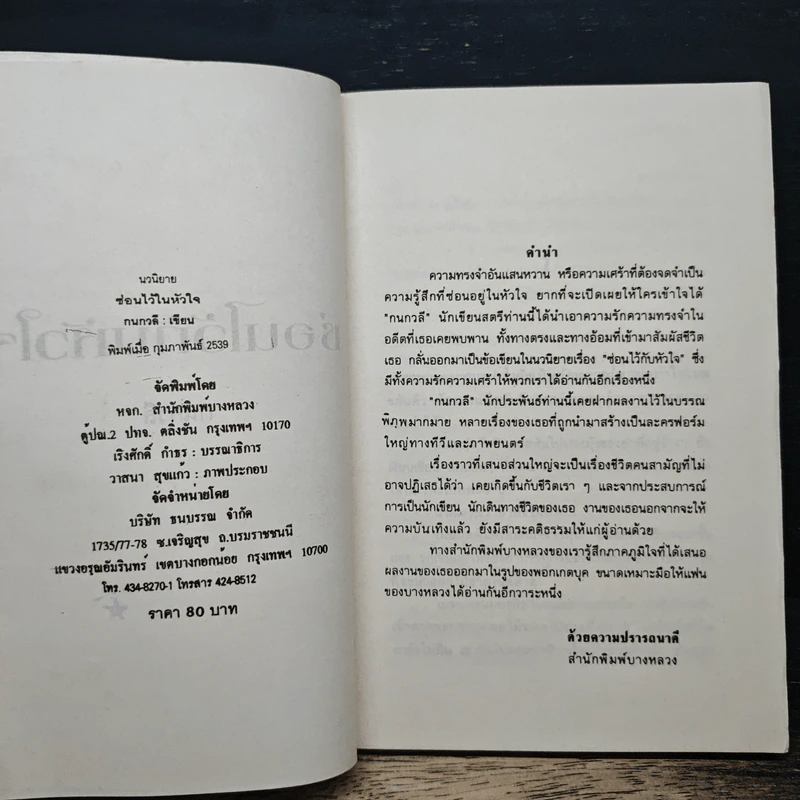 นวนิยาย
ซ่อนไว้ในหัวใจ
กนกวลี : เขียน
พิมพ์เมื่อ กุมภาพันธ์ 2539
จัดพิมพ์โดย
หจก. สำนักพิมพ์บางหลวง
ตู้ปณ.2 ปทจ. ตลิ่งชัน กรุงเทพฯ 10170
เริงศักดิ์ กำธร : บรรณาธิการ
วาสนา สุขแก้ว : ภาพประกอบ
จัดจำหน่ายโดย
บริษัท ธนบรรณ จำกัด
1735/77-78 ซ.เจริญสุข ถ.บรมราชชนนี
แขวงอรุณอัมรินทร์ เขตบางกอกน้อย กรุงเทพฯ 10700
โทร. 434-8270-1 โทรสาร 424-8512
ราคา 80 บาท
คำนำ
ความทรงจำอันแสนหวาน หรือความเศร้าที่ต้องจดจำเป็น
ความรู้สึกที่ซ่อนอยู่ในหัวใจ ยากที่จะเปิดเผยให้ใครเข้าใจได้
"กนกวลี" นักเขียนสตรีท่านนี้ได้นำเอาความรักความทรงจำใน
อดีตที่เธอเคยพบพาน ทั้งทางตรงและทางอ้อมที่เข้ามาสัมผัสชีวิต
เธอ กลั่นออกมาเป็นข้อเขียนในนวนิยายเรื่อง "ซ่อนไว้กับหัวใจ" ซึ่ง
มีทั้งความรักความเศร้าให้พวกเราได้อ่านกันอีกเรื่องหนึ่ง
"กนกวลี" นักประพันธ์ท่านนี้เคยฝากผลงานไว้ในบรรณ
พิภพมากมาย หลายเรื่องของเธอที่ถูกนำมาสร้างเป็นละครฟอร์ม
ใหญ่ทางทีวีและภาพยนตร์
เรื่องราวที่เสนอส่วนใหญ่จะเป็นเรื่องชีวิตคนสามัญที่ไม่
อาจปฏิเสธได้ว่า เคยเกิดขึ้นกับชีวิตเรา ๆ และจากประสบการณ์
การเป็นนักเขียน นักเดินทางชีวิตของเธอ งานของเธอนอกจากจะให้
ความบันเทิงแล้ว ยังมีสาระคติธรรมให้แก่ผู้อ่านด้วย
ทางสำนักพิมพ์บางหลวงของเรารู้สึกภาคภูมิใจที่ได้เสนอ
ผลงานของเธอออกมาในรูปของพอกเกตบุค ขนาดเหมาะมือให้แฟน
ของบางหลวงได้อ่านกันอีกวาระหนึ่ง
ด้วยความปรารถนาดี
สำนักพิมพ์บางหลวง